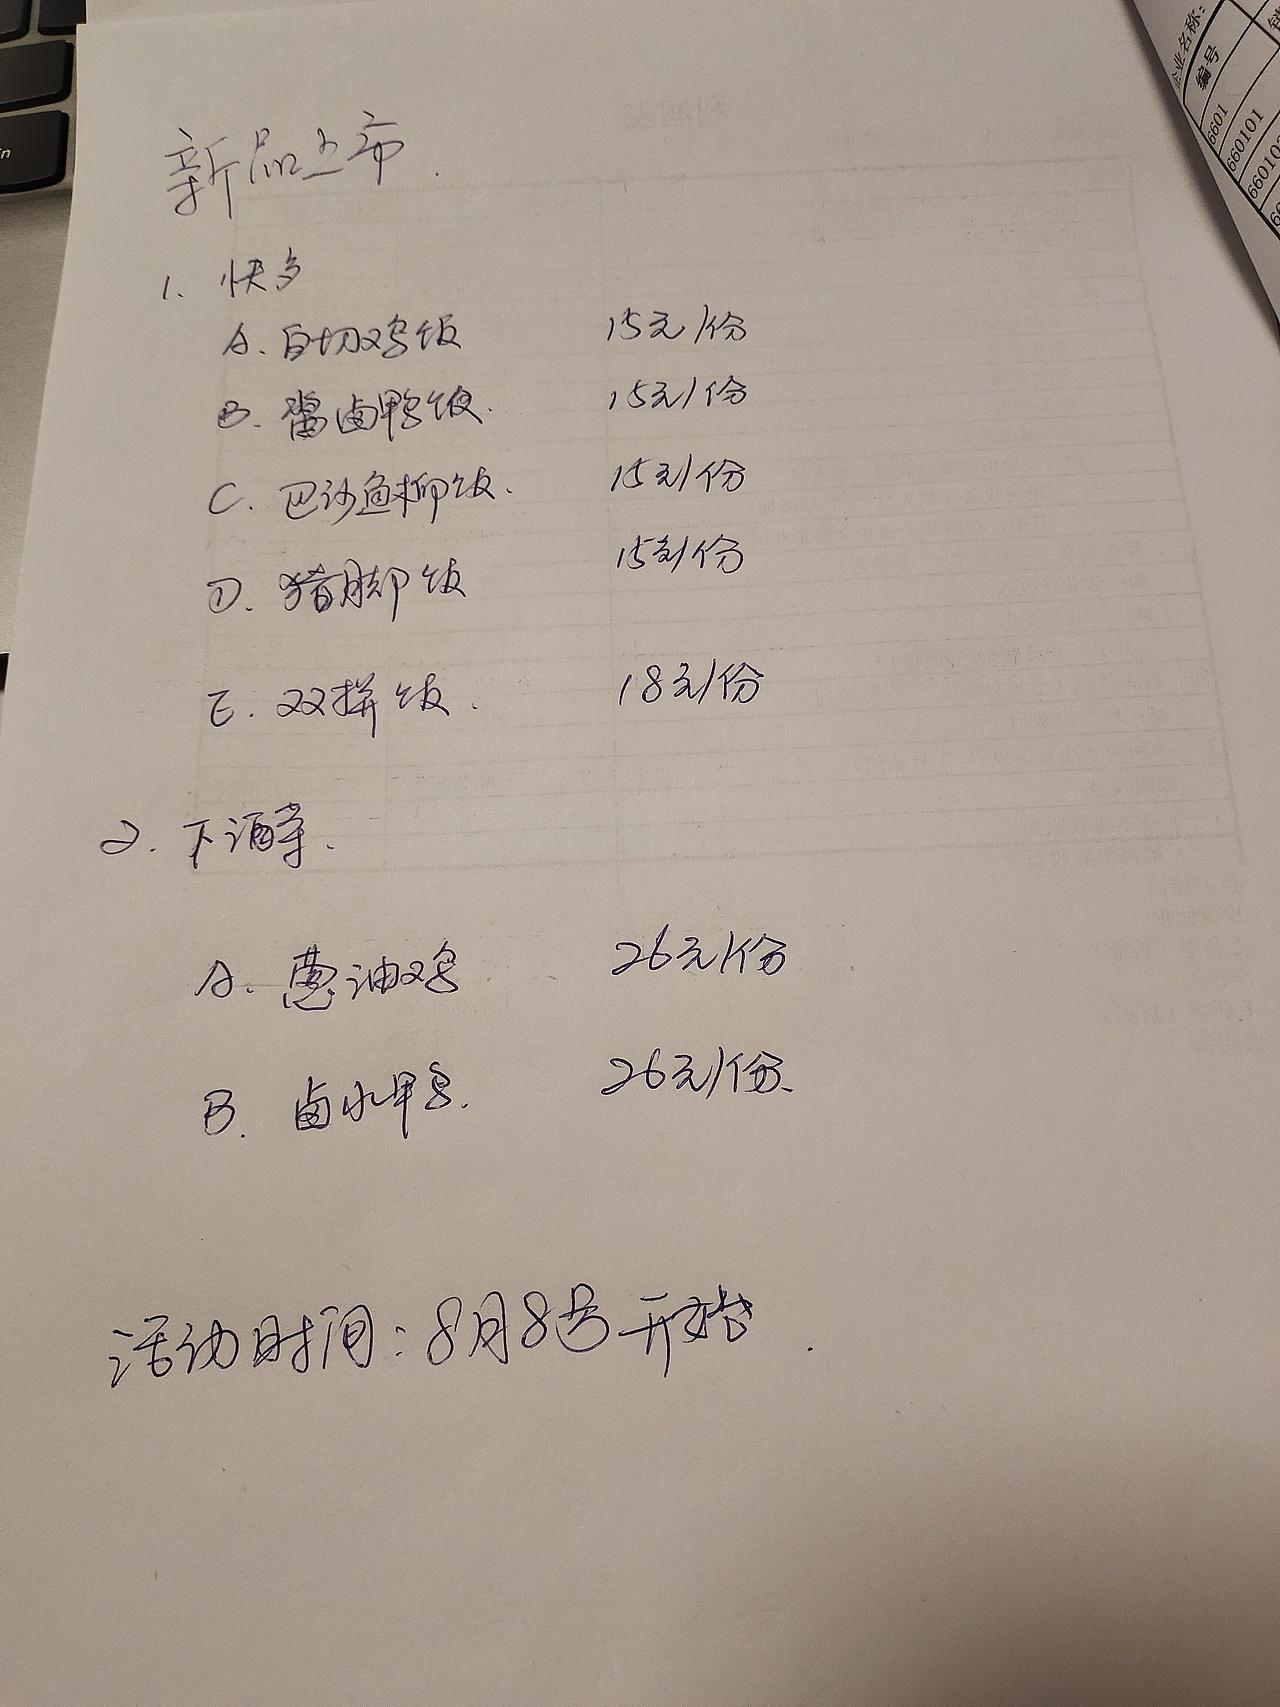 新品上市.
1. 快歺
A. 白切鸡饭 15元/份
B. 酱卤鸭饭. 15元/份
C. 巴沙鱼柳饭. 15元/份
D. 猪脚饭 15元/份
E. 双拼饭. 18元/份
2. 下酒菜.
A. 葱油鸡 26元/份
B. 卤水鸭. 26元/份.
活动时间:8月8号开始.
企业名称:
编号
6601
660101